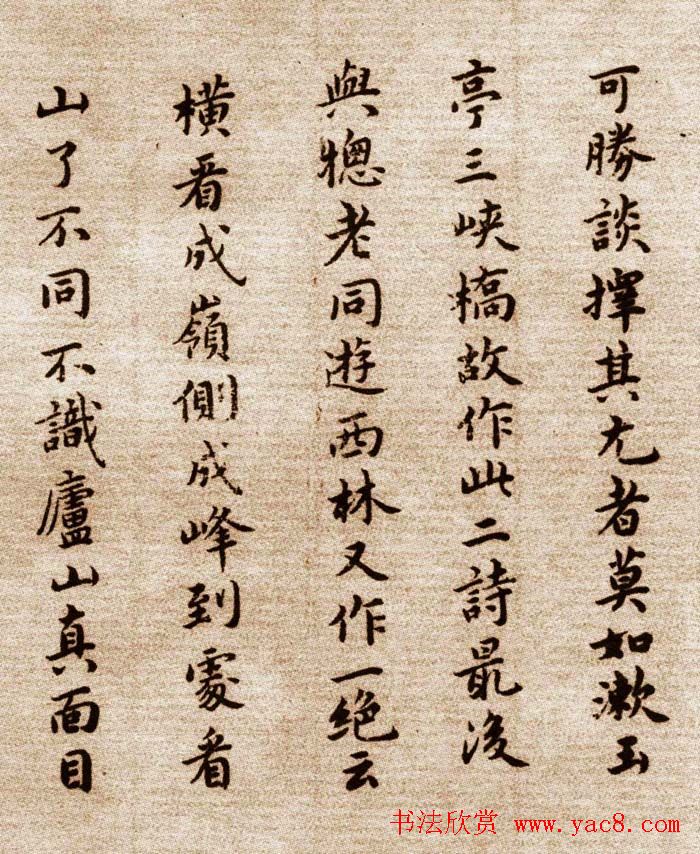 可勝談擇其尤者莫如漱玉
亭三峽橋故作此二詩最後
與聰老同遊西林又作一絕云
橫看成嶺側成峰到處看
山了不同不識廬山真面目
书法欣赏 www.yac8.com